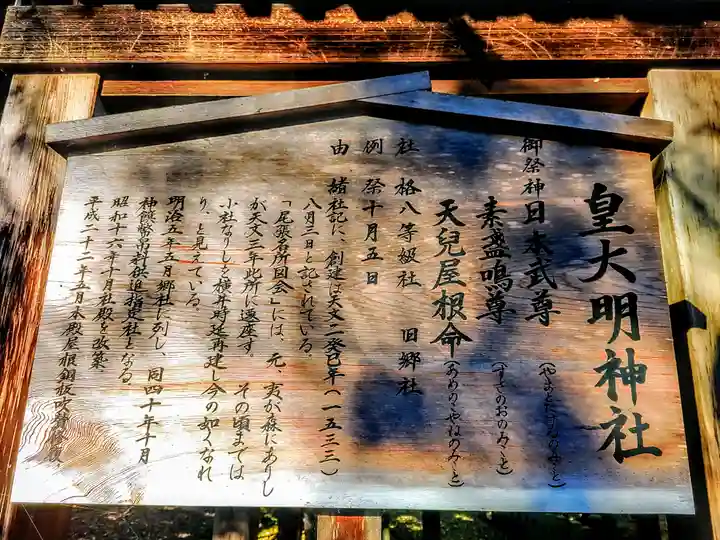 皇大明神社
御祭神 日本武尊 (やまとたけるのみこと)
素盞嗚尊 (すさのおのみこと)
天兒屋根命 (あめのこやねのみこと)
社格 八等級社 旧郷社
例祭 十月五日
由緒 社記に、創建は天文二癸巳年(一五三三)
八月三日と記されている。
「尾張名所図会」には、元、夷が森にありし
が天文三年此所に遷座す。その頃までは
小社なりしを横井時延再建し今の如くなれ
り、と見えている。
明治五年五月郷社に列し、同四十年十月
神饌幣帛料供進指定社となる。
昭和十六年十月社殿を改築
平成二十二年五月本殿屋根銅板